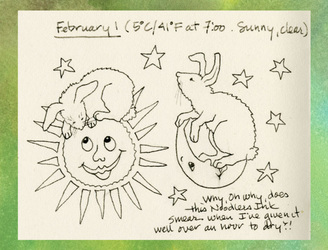 February 1 (5°C/41°F at 7:00. Sunny, clear)
Why, oh why, does
this Noodlers Ink
smear when I've given it
well over an hour to dry?!